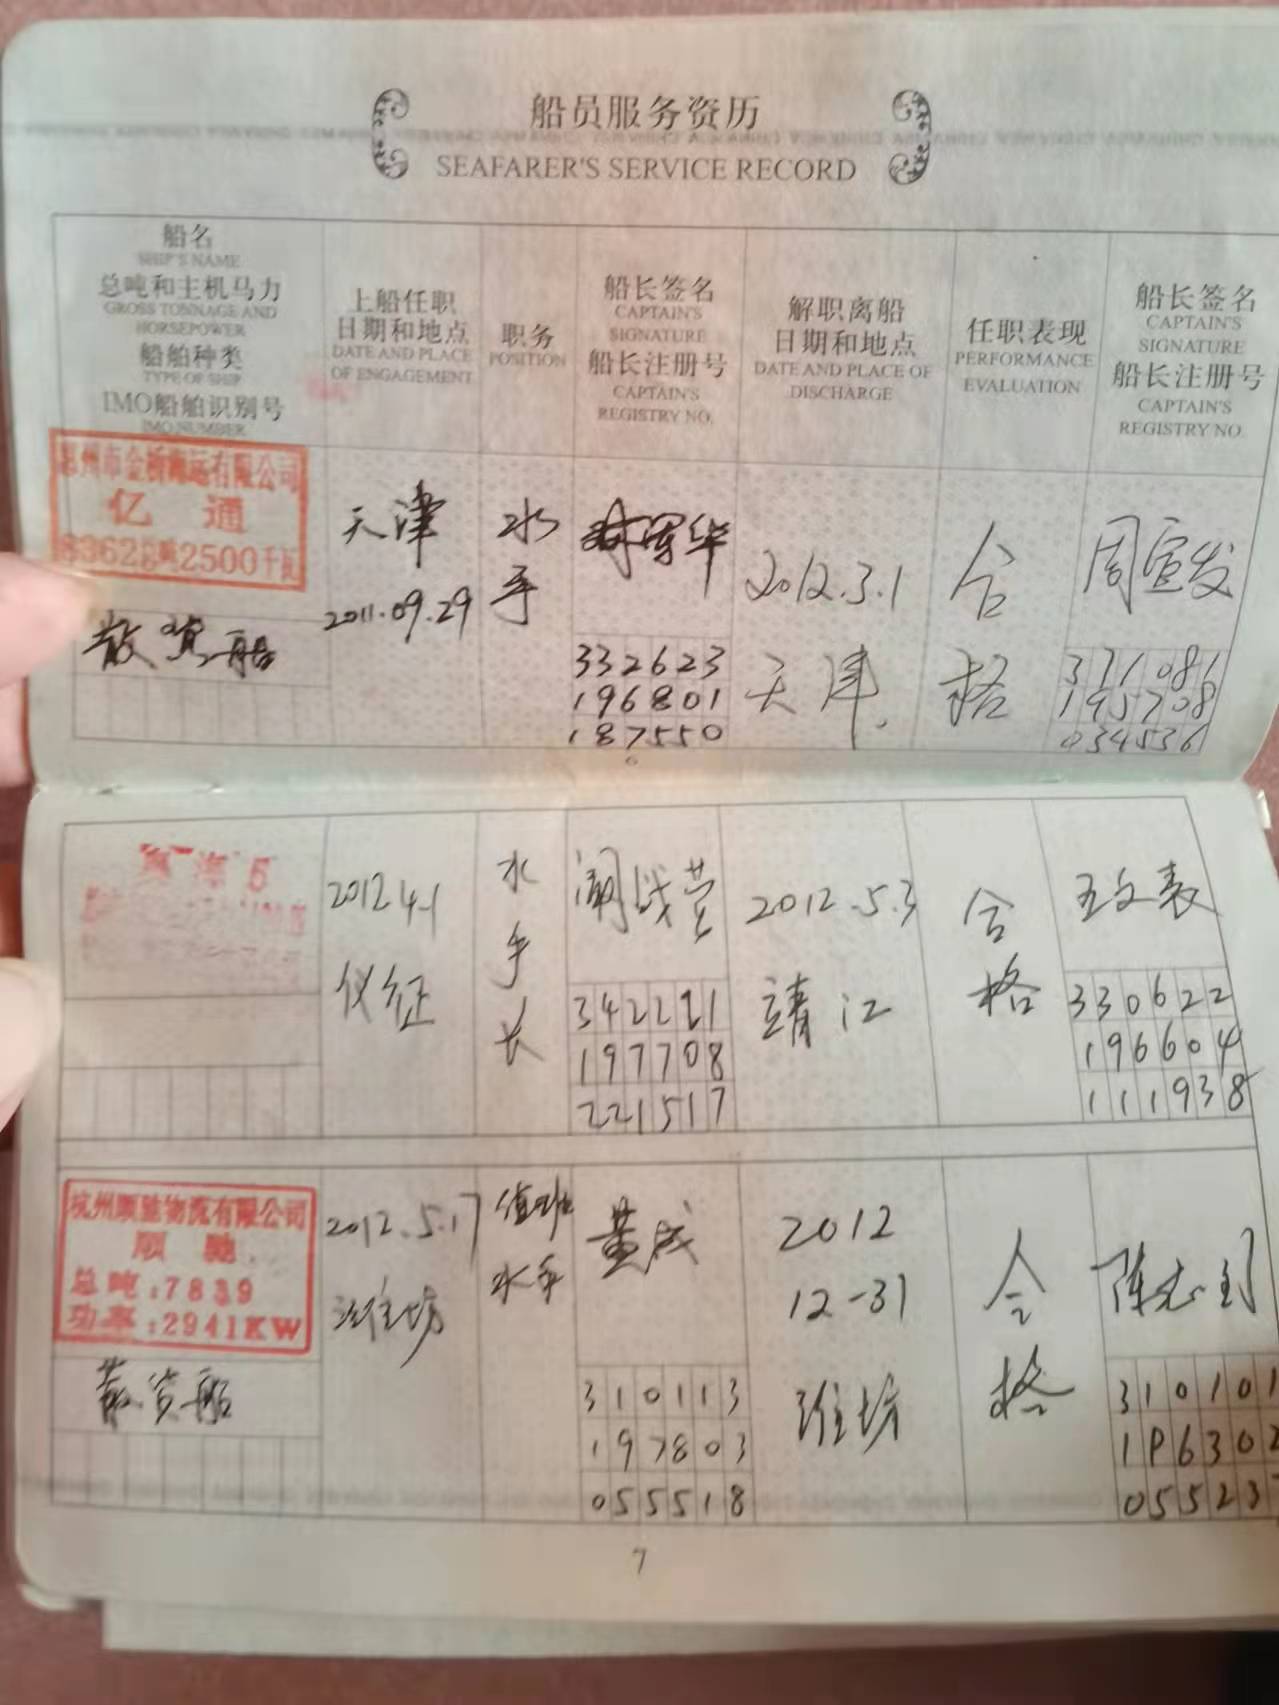 船员服务资历
SEAFARER'S SERVICE RECORD
船名
SHIP'S NAME
总吨和主机马力
GROSS TONNAGE AND
HORSEPOWER
船舶种类
TYPE OF SHIP
IMO船舶识别号
IMO NUMBER
上船任职
日期和地点
DATE AND PLACE
OF ENGAGEMENT
职务
POSITION
船长签名
CAPTAIN'S
SIGNATURE
船长注册号
CAPTAIN'S
REGISTRY NO.
解职离船
日期和地点
DATE AND PLACE OF
DISCHARGE
任职表现
PERFORMANCE
EVALUATION
船长签名
CAPTAIN'S
SIGNATURE
船长注册号
CAPTAIN'S
REGISTRY NO.
州市金桥海运有限公司
亿 通
362总吨2500千瓦
散货船
天津
2011.09.29
水
手
军华
332623
196801
187550
2012.3.1
天津.
合
格
周宣发
371081
195708
034536
6
海 5
2012 4.1
仪征
水
手
长
战营
342221
197708
221517
2012.5.3
靖江
合
格
王文表
330622
196604
111938
杭州顺驰物流有限公司
顺 驰
总吨:7839
功率:2941KW
散货船
2012.5.17
潍坊
值班
水手
黄成
310113
197803
055518
2012
12-31
潍坊
合
格
陈志钊
310101
196302
05523
7